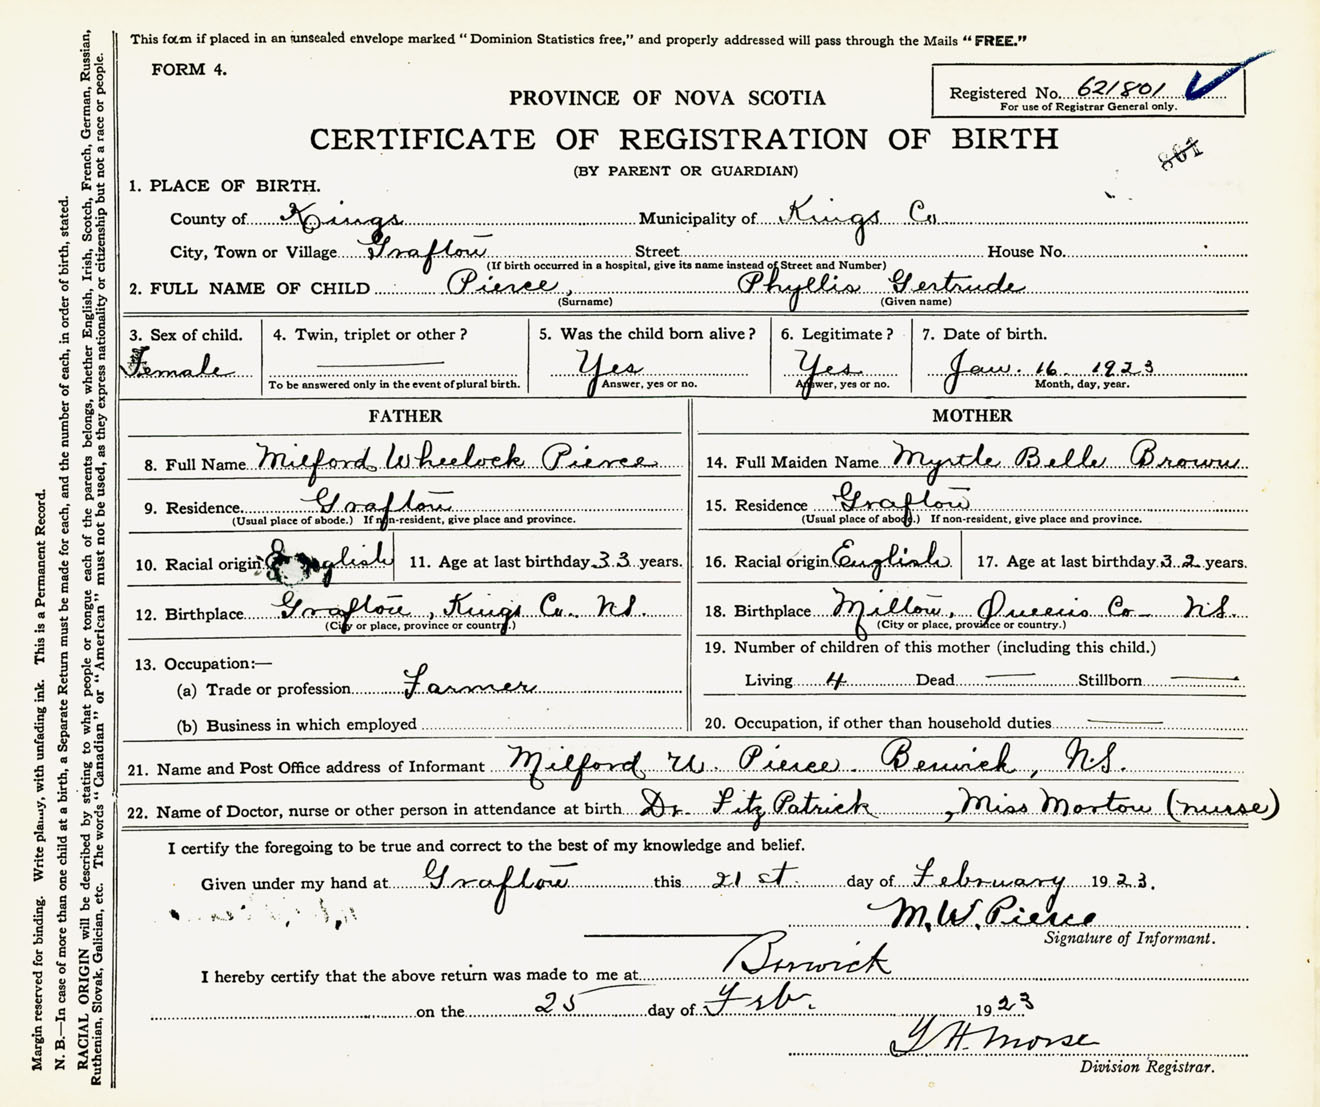 This form if placed in an unsealed envelope marked "Dominion Statistics free," and properly addressed will pass through the Mails "FREE."
FORM 4.
Registered No. 621801
For use of Registrar General only.
PROVINCE OF NOVA SCOTIA
CERTIFICATE OF REGISTRATION OF BIRTH
801
(BY PARENT OR GUARDIAN)
1. PLACE OF BIRTH.
County of Kings Municipality of Kings Co
City, Town or Village Grafton Street House No.
(If birth occurred in a hospital, give its name instead of Street and Number)
2. FULL NAME OF CHILD Pierce, Phyllis Gertrude
(Surname) (Given name)
3. Sex of child. 4. Twin, triplet or other? 5. Was the child born alive? 6. Legitimate? 7. Date of birth.
Female Yes Yes Jan. 16. 1923
To be answered only in the event of plural birth. Answer, yes or no. Answer, yes or no. Month, day, year.
FATHER MOTHER
8. Full Name Milford Wheelock Pierce 14. Full Maiden Name Myrtle Belle Brown
9. Residence Grafton 15. Residence Grafton
(Usual place of abode.) If non-resident, give place and province. (Usual place of abode.) If non-resident, give place and province.
10. Racial origin English 11. Age at last birthday 33 years. 16. Racial origin English 17. Age at last birthday 32 years.
12. Birthplace Grafton, Kings Co. N.S. 18. Birthplace Milton, Queens Co N.S.
(City or place, province or country.) (City or place, province or country.)
13. Occupation:— 19. Number of children of this mother (including this child.)
(a) Trade or profession Farmer Living 4 Dead Stillborn
(b) Business in which employed 20. Occupation, if other than household duties
21. Name and Post Office address of Informant Milford W. Pierce. Berwick, N.S.
22. Name of Doctor, nurse or other person in attendance at birth Dr. FitzPatrick, Miss Morton (nurse)
I certify the foregoing to be true and correct to the best of my knowledge and belief.
Given under my hand at Grafton this 21st. day of February 1923.
M. W. Pierce
Signature of Informant.
I hereby certify that the above return was made to me at Berwick
on the 25 day of Feb. 1923
G H Morse
Division Registrar.
Margin reserved for binding. Write plainly, with unfading ink. This is a Permanent Record.
N. B.—In case of more than one child at a birth, a Separate Return must be made for each, and the number of each, in order of birth, stated.
RACIAL ORIGIN will be described by stating to what people or tongue each of the parents belongs, whether English, Irish, Scotch, French, German, Russian,
Ruthenian, Slovak, Galician, etc. The words "Canadian" or "American" must not be used, as they express nationality or citizenship but not a race or people.